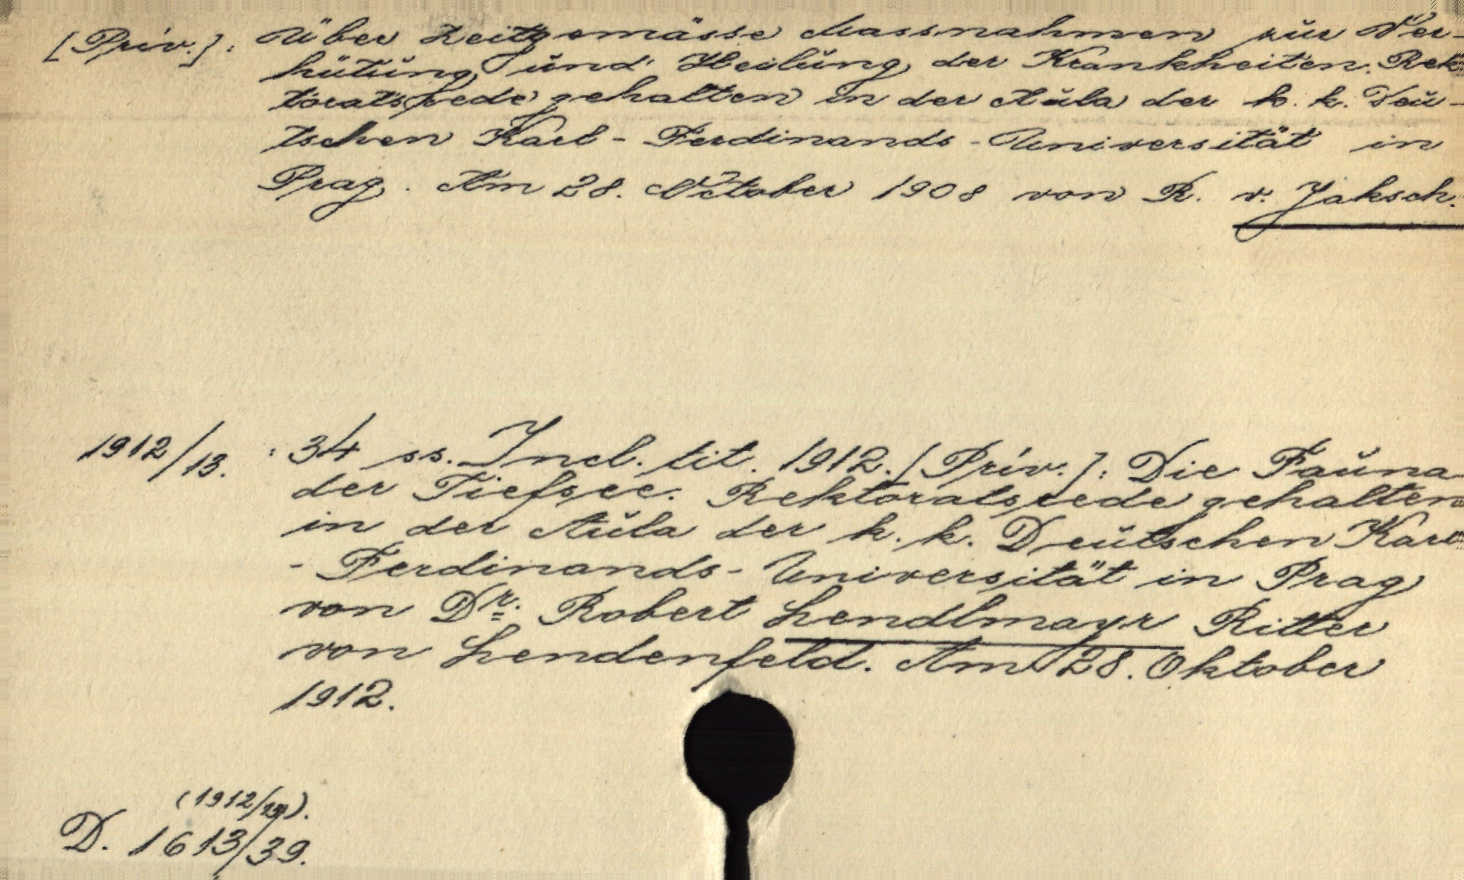 [Priv.]: Über zeitgemässe Massnahmen zur Ver-
hütung und Heilung der Krankheiten. Rek
toratsrede gehalten in der Aula der k. k. Deu-
tschen Karl - Ferdinands - Universität in
Prag. Am 28. October 1908 von R. v. Jaksch.
1912/13. : 34 ss. Incl. tit. 1912. [Priv.]: Die Fauna
der Tiefsee. Rektoratsrede gehalten
in der Aula der k. k. Deutschen Karl
- Ferdinands - Universität in Prag
von Dr. Robert Lendlmayr Ritter
von Lendenfeld. Am 28. Oktober
1912.
(1912/13).
D. 1613/39.